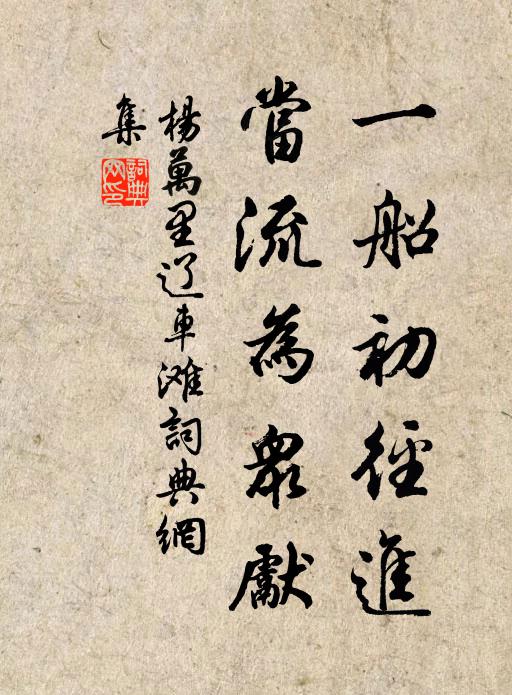 一船初徑進
當流為衆獻
楊萬里過車滩詞典網
集
詞典
网印